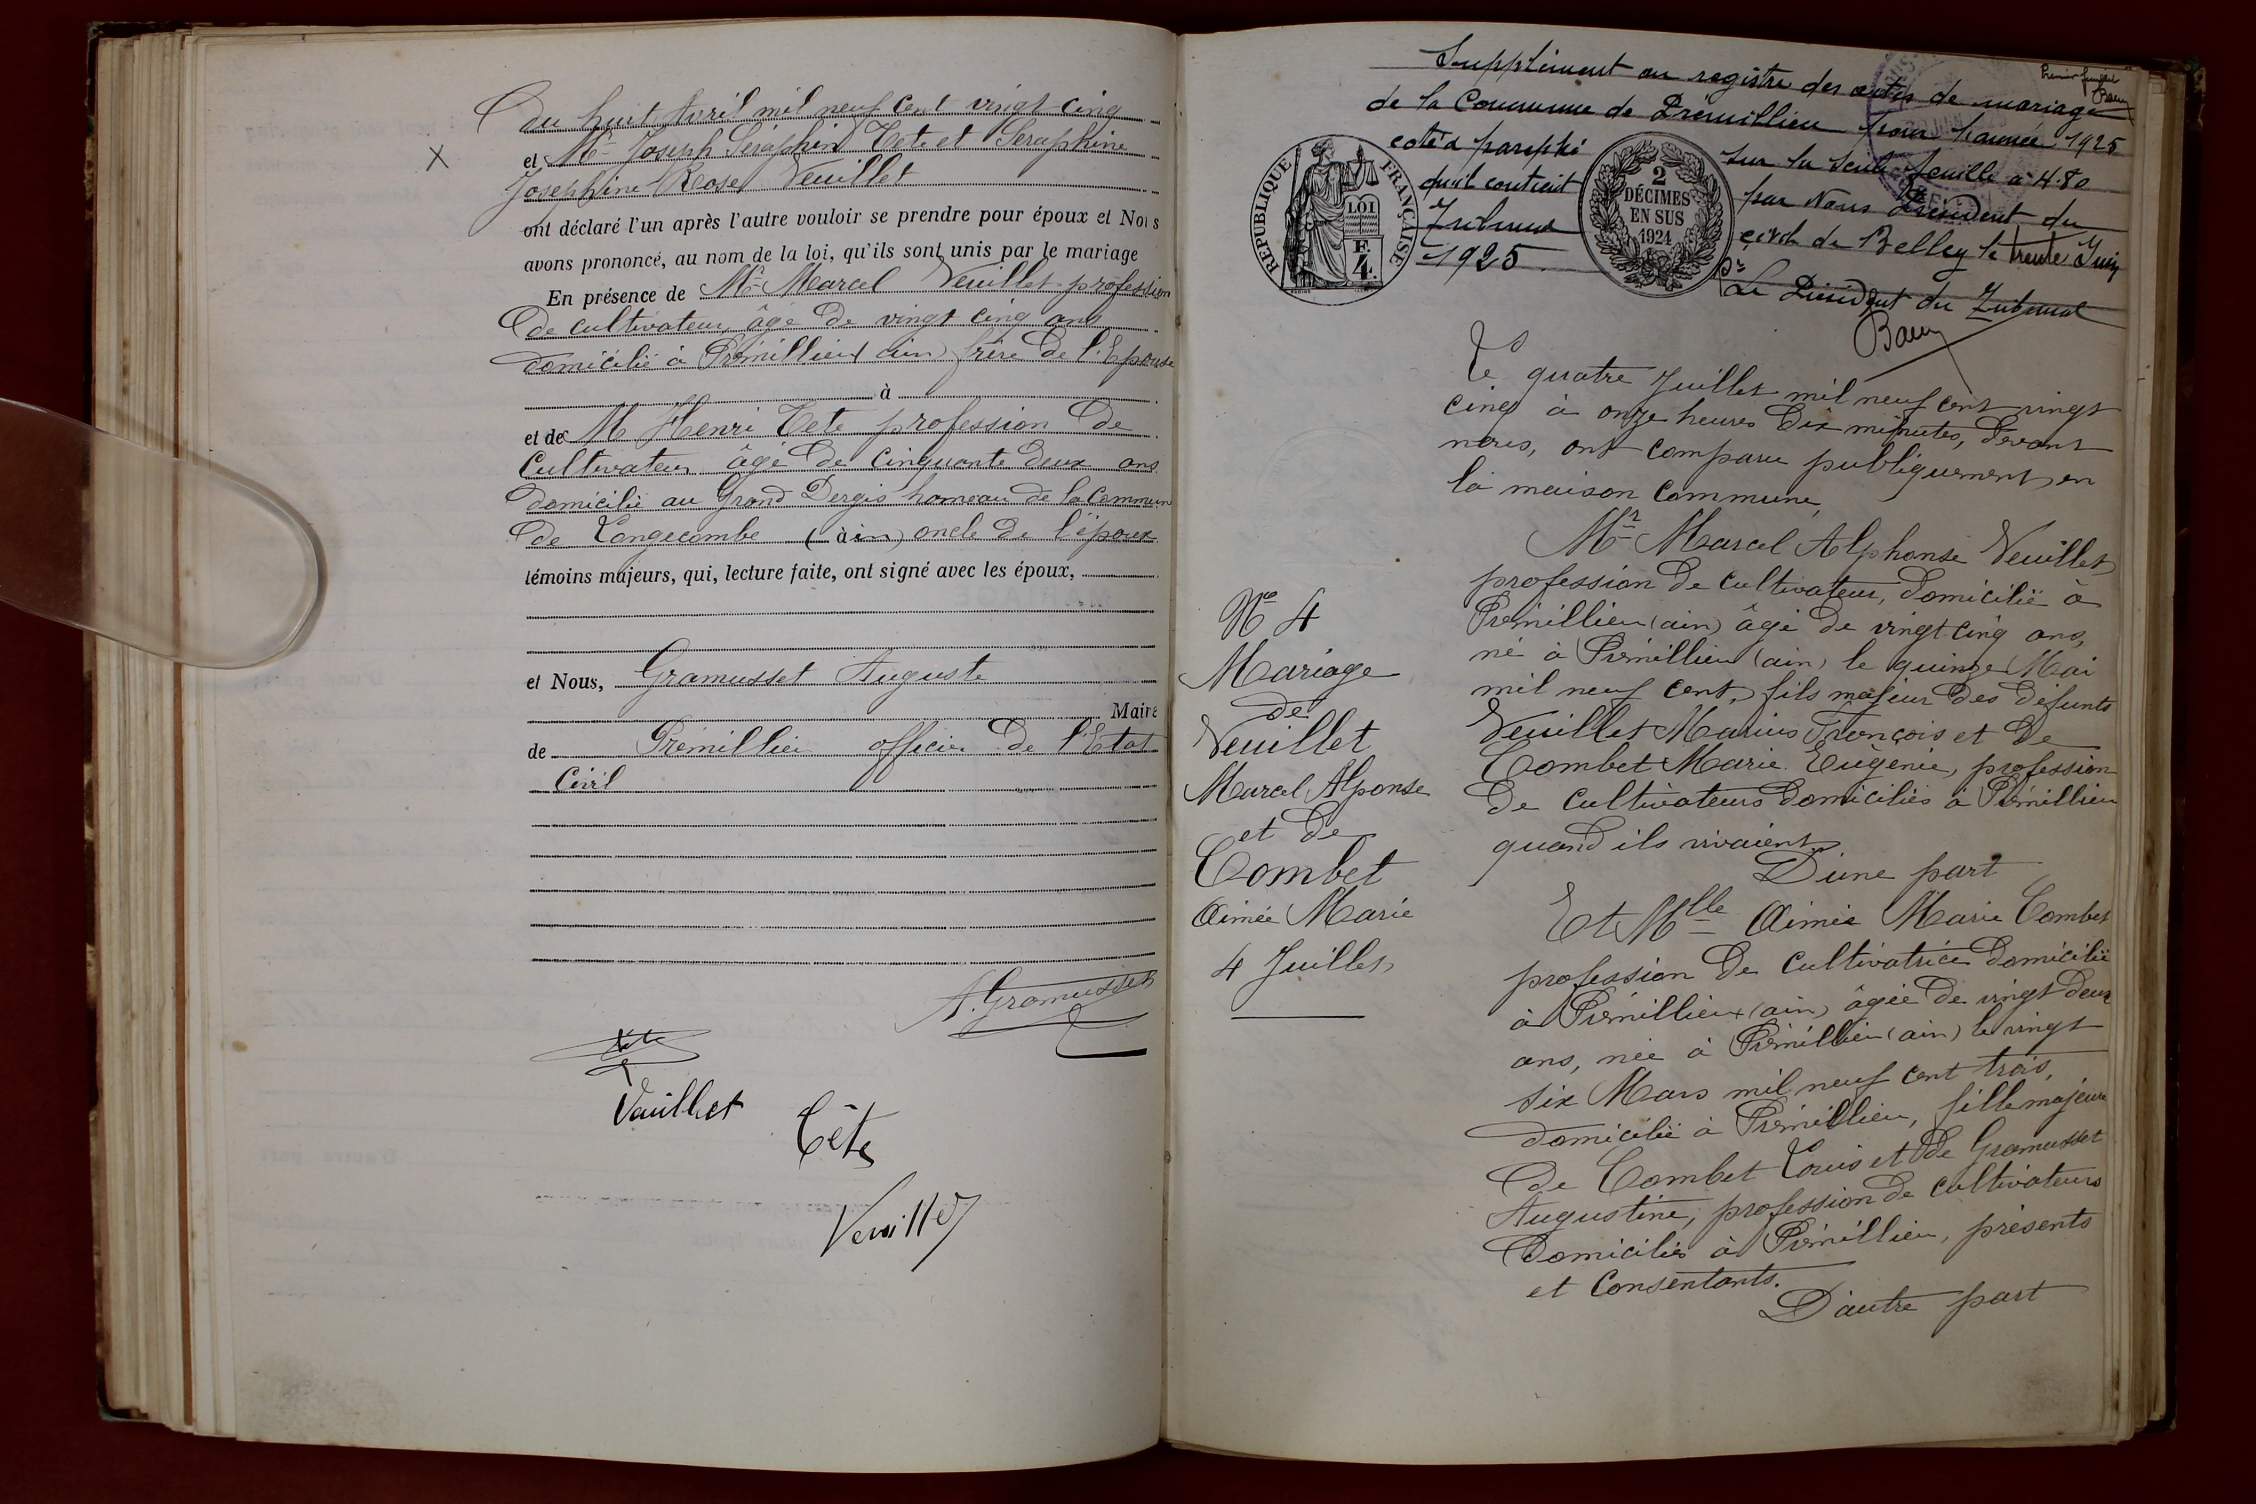 Du huit Avril mil neuf cent vingt cinq
et Mr Joseph Séraphin Tete et Seraphine
Josephine Rose Veuillet
ont déclaré l'un après l'autre vouloir se prendre pour époux et Nous
avons prononcé, au nom de la loi, qu'ils sont unis par le mariage
En présence de Mr Marcel Veuillet profession
De cultivateur, âgé De vingt cinq ans
domicilié à Prémillieu (ain) frère De l'Epouse
à
et de M Henri Tete profession De
Cultivateur âgé De Cinquante Deux ans
domicilié au Grand Dergis hameau de la Commune
De Longecombe (ain) oncle De l'époux
témoins majeurs, qui, lecture faite, ont signé avec les époux,
et Nous, Gramusset Auguste
Maire
de Prémillieu officier De l'Etat
Civil
A. Gramusset
Tete
Vauillet
Tête
Veuillet
Premier feuillet
Supplément au registre des actes de mariage
de la Commune de Prémillieu pour l'année 1925
coté & paraphé sur la seule feuille à 4.80
qu'il contient par Nous Président du
Tribunal civil de Belley le trente Juin
1925
RÉPUBLIQUE FRANÇAISE
LOI
F.
4.
2
DÉCIMES
EN SUS
1924
Pr Le Président du Tribunal
Le quatre Juillet mil neuf cent vingt
cinq à onze heures Dix minutes, Devant
nous, ont comparu publiquement en
la maison commune,
Mr Marcel Alphonse Veuillet
profession De cultivateur, Domicilié à
Prémillieu (ain) âgé De vingt cinq ans,
né à Prémillieu (ain) le quinze Mai
mil neuf cent, fils majeur Des Défunts
Veuillet Marius François et De
Combet Marie Eugénie, profession
De Cultivateurs Domiciliés à Prémillieu
quand ils vivaient
D'une part
Et Mlle Aimée Marie Combet
profession De Cultivatrice Domicilié
à Prémillieu (ain) âgée De vingt Deux
ans, née à Prémillieu (ain) le vingt
six Mars mil neuf cent trois,
domicilié à Prémillieu, fille majeure
De Combet Louis et De Gramusset
Augustine, profession De cultivateurs
Domiciliés à Prémillieu, présents
et Consentants.
D'autre part
Nro 4
Mariage
De
Veuillet
Marcel Alponse
et De
Combet
Aimée Marie
4 Juillet